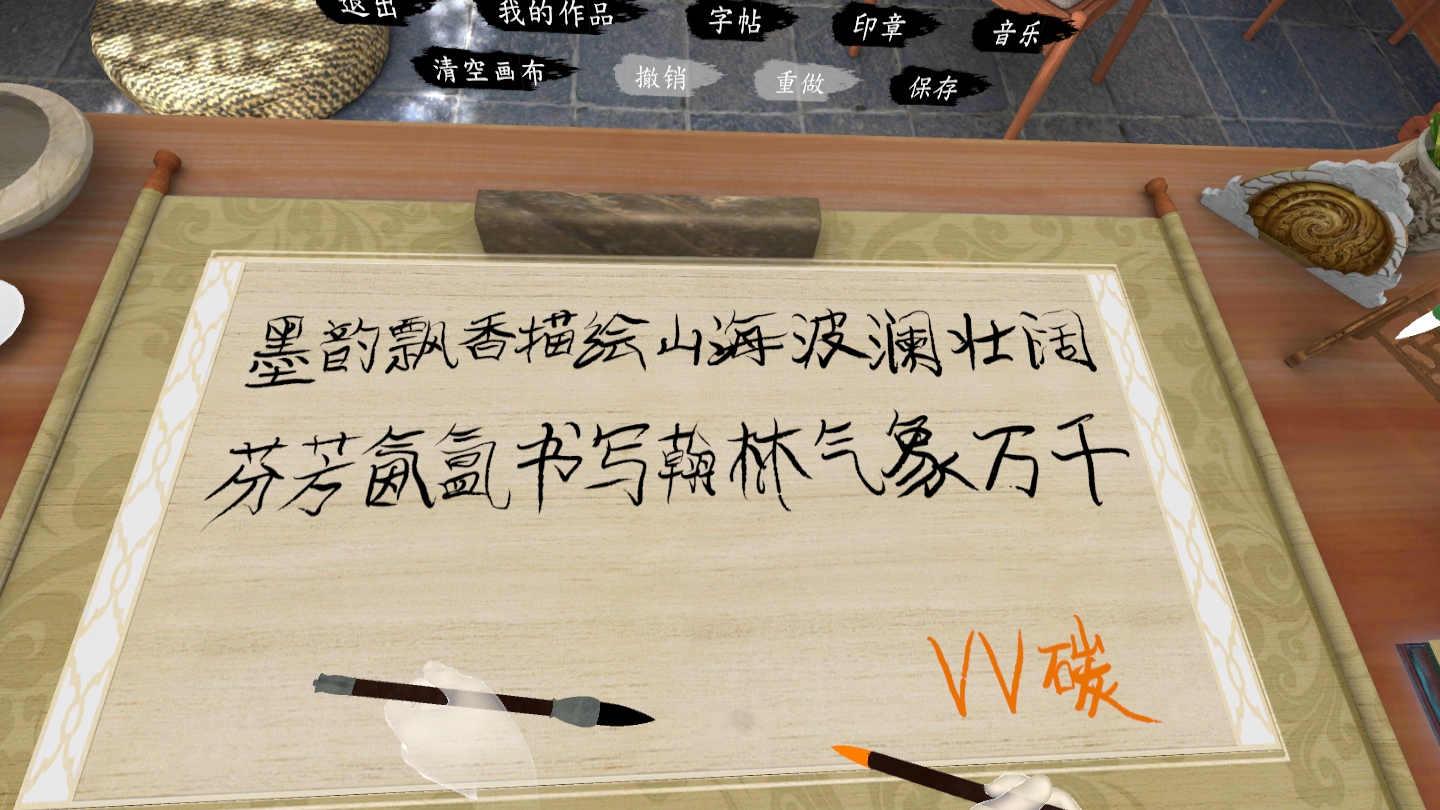 退出 我的作品 字帖 印章 音乐
清空画布 撤销 重做 保存
墨韵飘香描绘山海波澜壮阔
芬芳氤氲书写翰林气象万千
VV碳